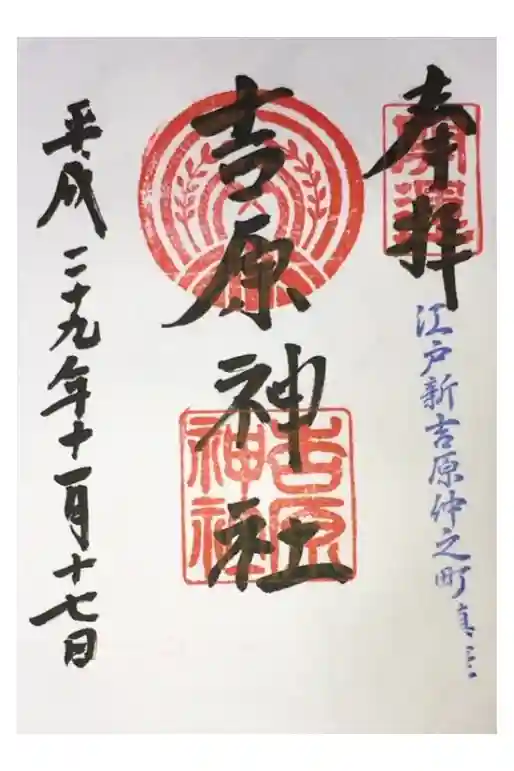 奉拝
開運
江戸新吉原仲之町
吉原神社
吉原
神社
平成二十九年十一月十七日